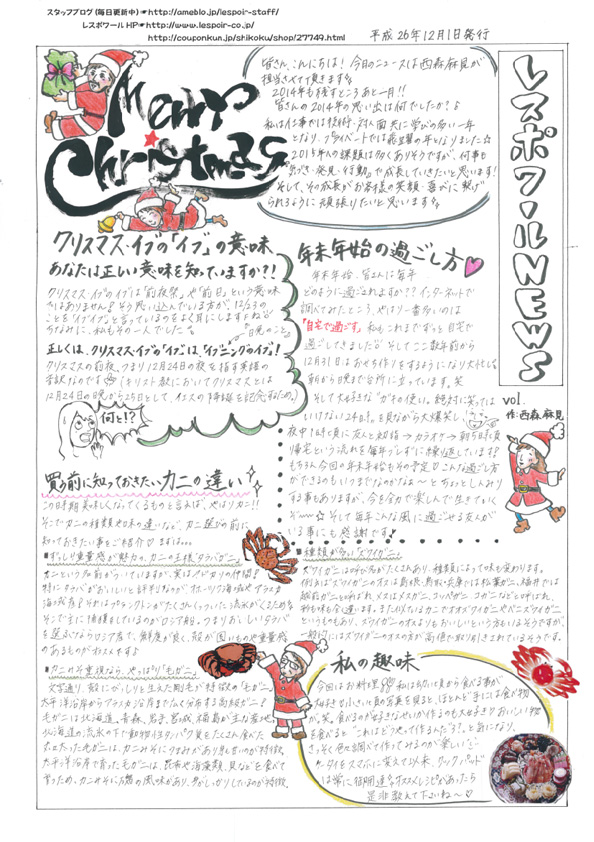 スタッフブログ(毎日更新中)☛http://ameblo.jp/lespoir-staff/
レスポワール HP☛http://www.lespoir-co.jp/
http://couponkun.jp/shikoku/shop/27749.html
平成26年12月1日発行
Merry
Christmas
レスポワールNEWS
皆さん、こんにちは! 今日のニュースは西森麻見が
担当させて頂きます
2014年も残すところあと一月!!
皆さんの2014年の思い出は何でしたか?♪
私は仕事では技術・対人面共に学びの多い一年
となり、プライベートでは
2015年の課題は多くありそうですが、何事も
気づき・発見・行動で成長していきたいと思います!
そして、その成長がお客様の笑顔・喜びに繋げ
られるように頑張りたいと思います
クリスマス・イブの「イブ」の意味
あなたは正しい意味を知っていますか?!
クリスマス・イブのイブは「前夜祭」や「前日」という意味
ではありません! そう思い込んでいる方が、12/23の
ことを「イブイブ」と言っているのをよく耳にしますよね
ちなみに、私もその一人でした
正しくは、クリスマス・イブの「イブ」は、「イブニングのイブ」!
クリスマスの前夜、つまり12月24日の夜を指す英語の
音訳なのです(キリスト教においてクリスマスとは
12月24日の晩から25日として、イエスの降誕を記念するため。)
何と!?
年末年始の過ごし方
年末年始、皆さんは毎年
どのように過ごされますか?? インターネットで
調べてみたところ、やはり一番多いのは
「自宅で過ごす」 私もこれまでずっと自宅で
過ごしてきました そしてここ数年前から
12月31日はおせち作りをするようになり大忙しで
朝から晩まで台所に立っています。笑
そして大好きな"ガキの使い。絶対に笑っては
いけない24時!"を見ながら大爆笑し、
夜中1時頃に友人と初詣→カラオケ→朝5時頃
帰宅という流れを毎年ブレずに繰り返しています!
もちろん今回の年末年始もその予定 こんな過ごし方
ができるのもいつまでなのかなぁ〜とちょっとしんみり
する事もありますが、今を全力で楽しんで生きてなくて
ぞ〜☆ そして毎年こんな風に過ごせる友人が
いる事にも感謝です!
vol.
作:西森 麻見
買う前に知っておきたい、カニの違い
この時期美味しくなってくるものと言えば、やはりカニ!!
そこでカニの種類や味の違いなど、カニ選びの前に
知っておきたい事をご紹介 まずは…
■ずっしり重量感が魅力の、カニの王様「タラバガニ」
カニという名前がついていますが、実はヤドカリの仲間!
特にタラバがおいしいと評判なのが、オホーツク海域やアラスカ
海域産! それはプランクトンがたくさんくっついた流氷がくるため
そこで主に捕獲しているのがロシア船。つまりおいしいタラバ
を選ぶならロシア産で、鮮度が良く、殻が固いものや重量感
のあるものがおススメですよ
■カニみそ重視なら、やっぱり「毛ガニ」
文字通り、殻にびっしりと生えた剛毛が特徴の「毛ガニ」。
太平洋沿岸からアラスカ沿岸まで広く分布する高級ガニ!
毛ガニは北海道、青森、岩手、宮城、福島が主な産地
北海道の流氷の下で動物性プランクトンをたくさん食べた
オホーツク毛ガニは、カニみそにうまみがあり身も甘いのが特徴。
太平洋沿岸で育った毛ガニは、昆布や海藻類、貝などを食べて
育ったため、カニみそに磯の風味があり、身がしっかりしているのが特徴。
■種類が多い「ズワイガニ」
ズワイガニは呼び名がたくさんあり、種類によって味も変わります。
例えばズワイガニのオスは島根・鳥取・兵庫では松葉ガニ、福井では
越前ガニと呼ばれ、メスはメスガニ、コッペガニ、コガニなどと呼ばれ、
形も味も全く違います。また似ているカニでオオズワイガニやベニズワイガニ
というものもあり、ズワイガニのオスよりもおいしいという方もいるそうですが、
一般的にはズワイガニのオスの方が高値で取り引きされているそうです。
私の趣味
今回はお料理 私は幼い頃から食べる事が
大好きで小さい頃の写真を見ると、ほとんど手には食べ物
が。笑。食べるのが好きなせいか作るのも大好き!! おいしい物
を食べると「これはどうやって作るんだろ?」と気になり、
すぐ色々調べて作ってみるのが楽しい
ケータイをスマホに変えて以来、クックパッド
は常に御用達 オススメレシピがあったら
是非教えて下さいね〜♡